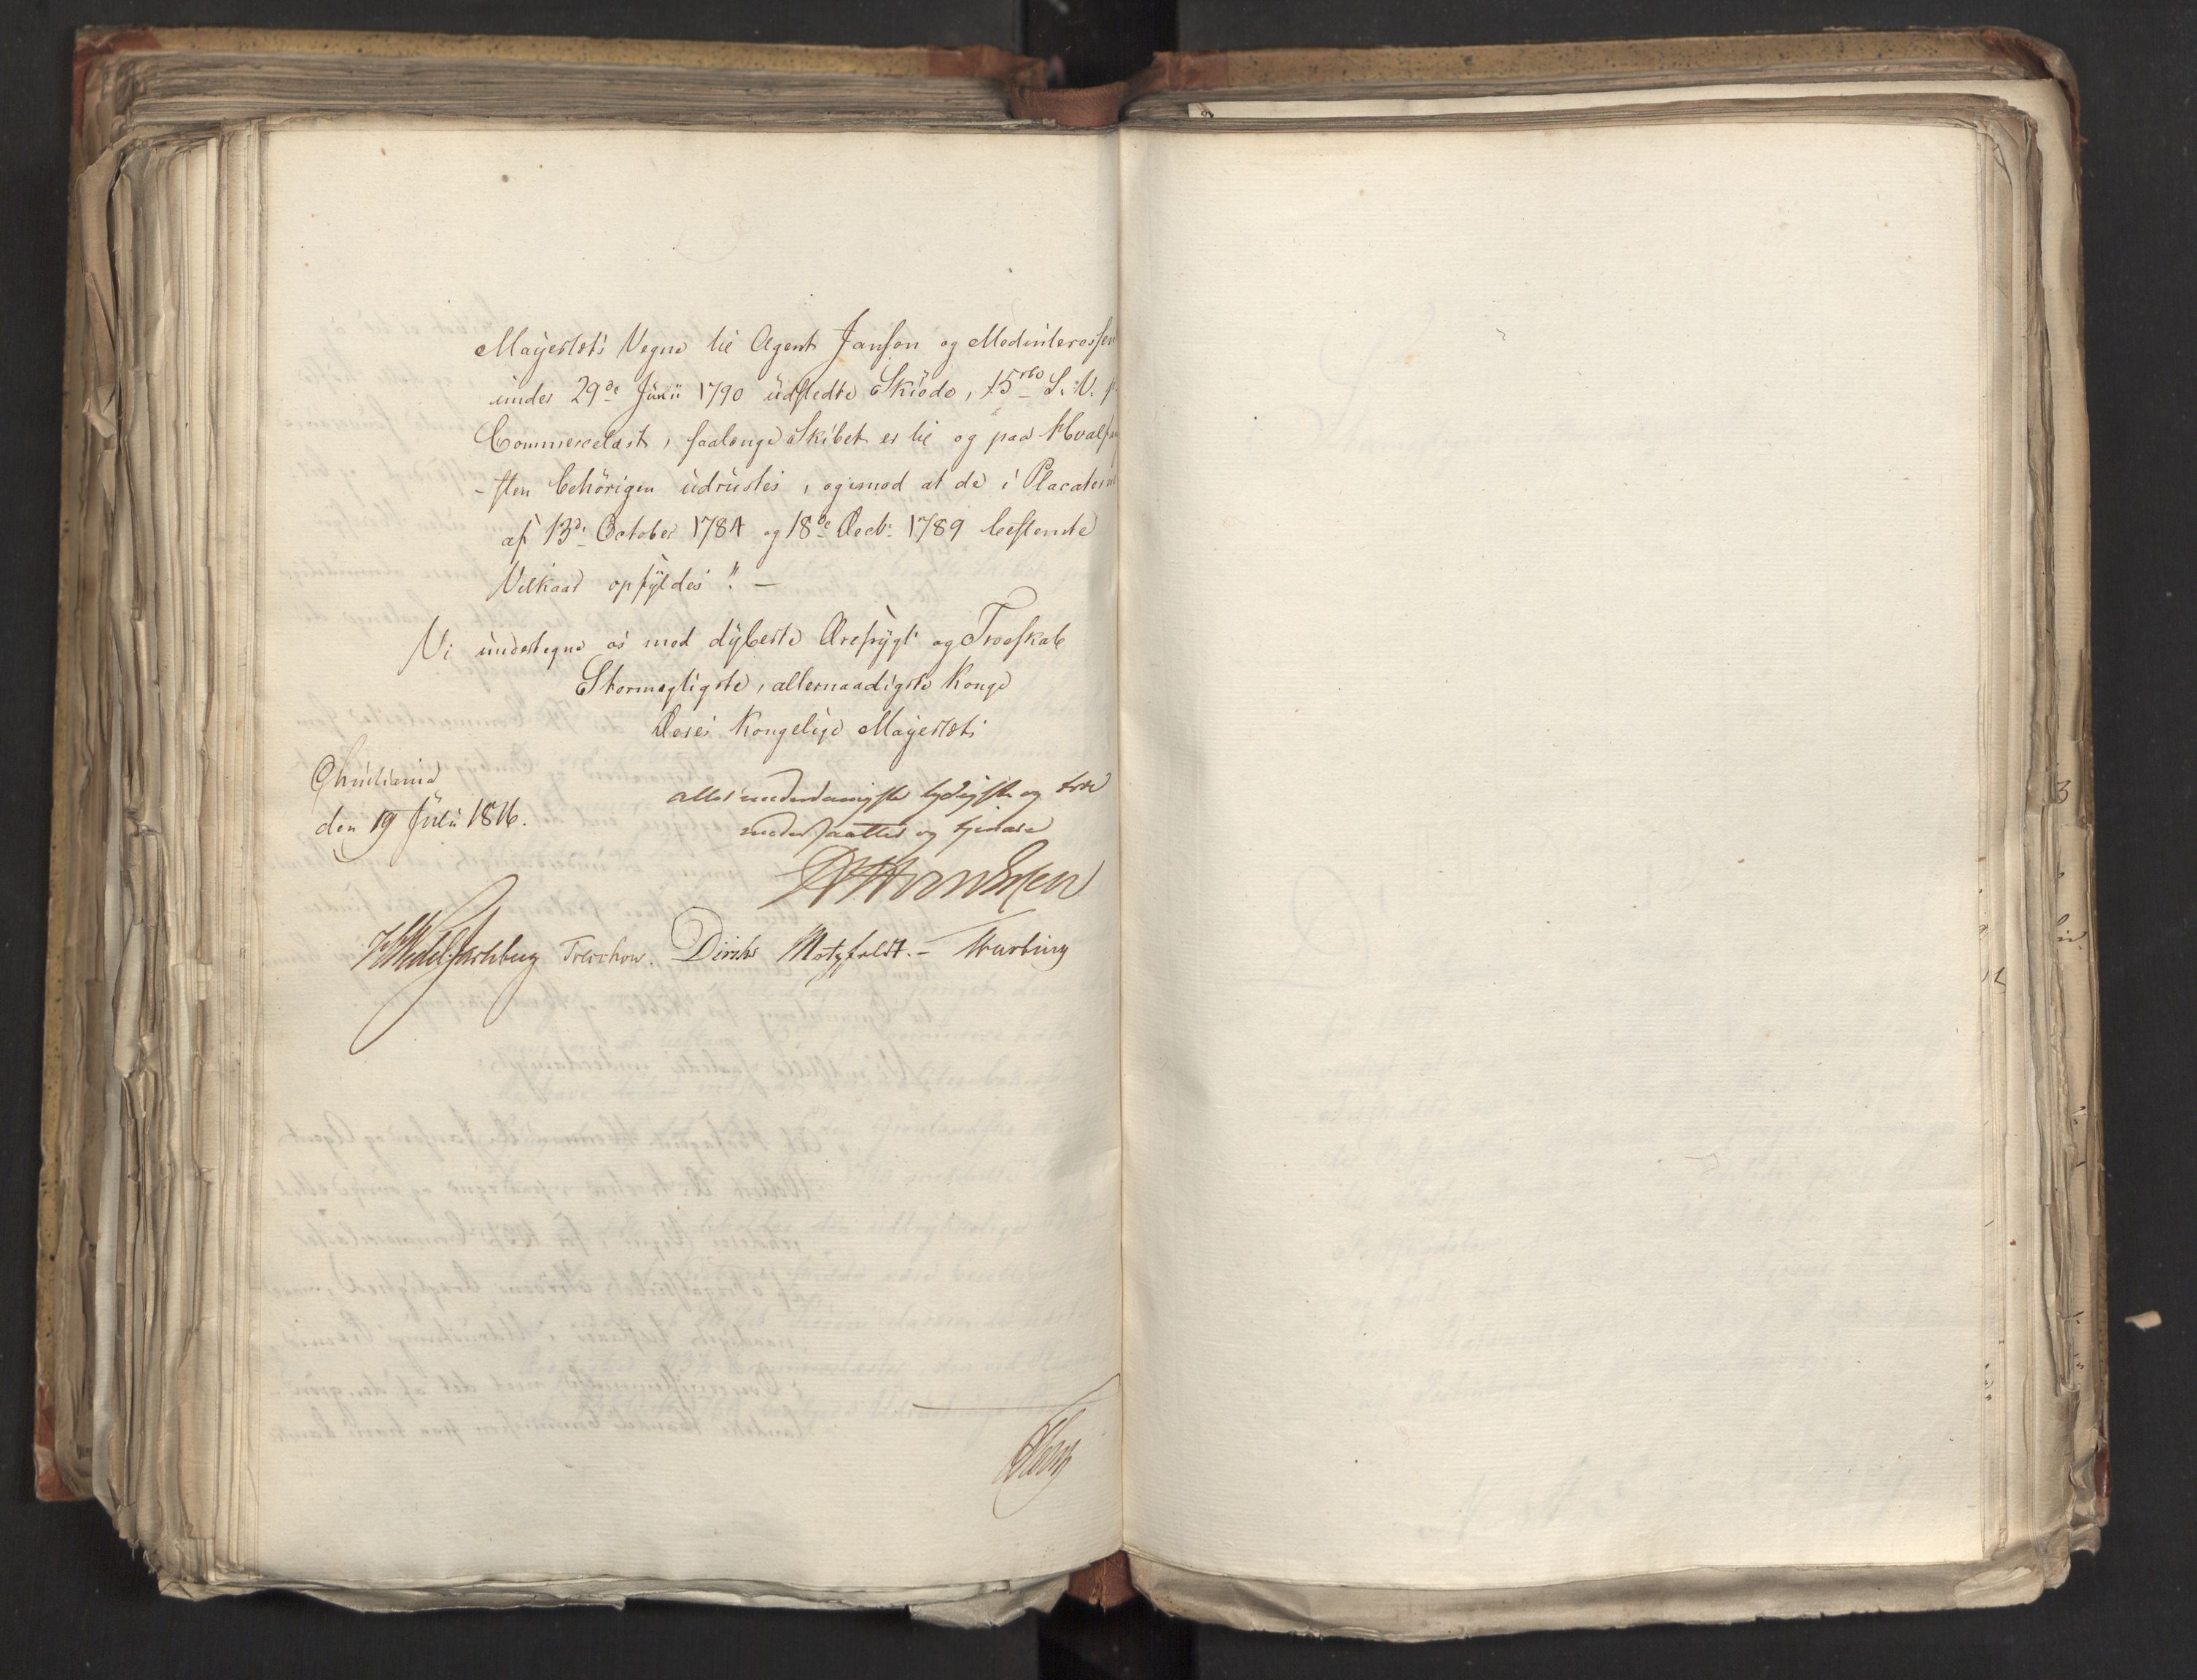 Mayestæts Vegne til Agent Janson og Medinteressen
under 29de Junii 1790 udstedte Skiöde, 15 rbd S. V. p
Commercelæst, saalænge Skibet er til og paa Hvalfan
-sten behörigen udrustes, og imod at de i Placaterne
af 13de October 1784 og 18de Decb: 1789 bestemte
Vilkaar opfÿldes". —
Vi undertegne os med dÿbeste Ærefrÿgt og Troeskab
Stormægtigste, allernaadigste Konge
Deres Kongelige Mayestæts
Christiania
den 19 Julii 1816.
allerunderdanigste lydigste og troe
undersaatter og tjenare
Wedel Jarlsberg Treschow. Diriks Motzfeldt. —